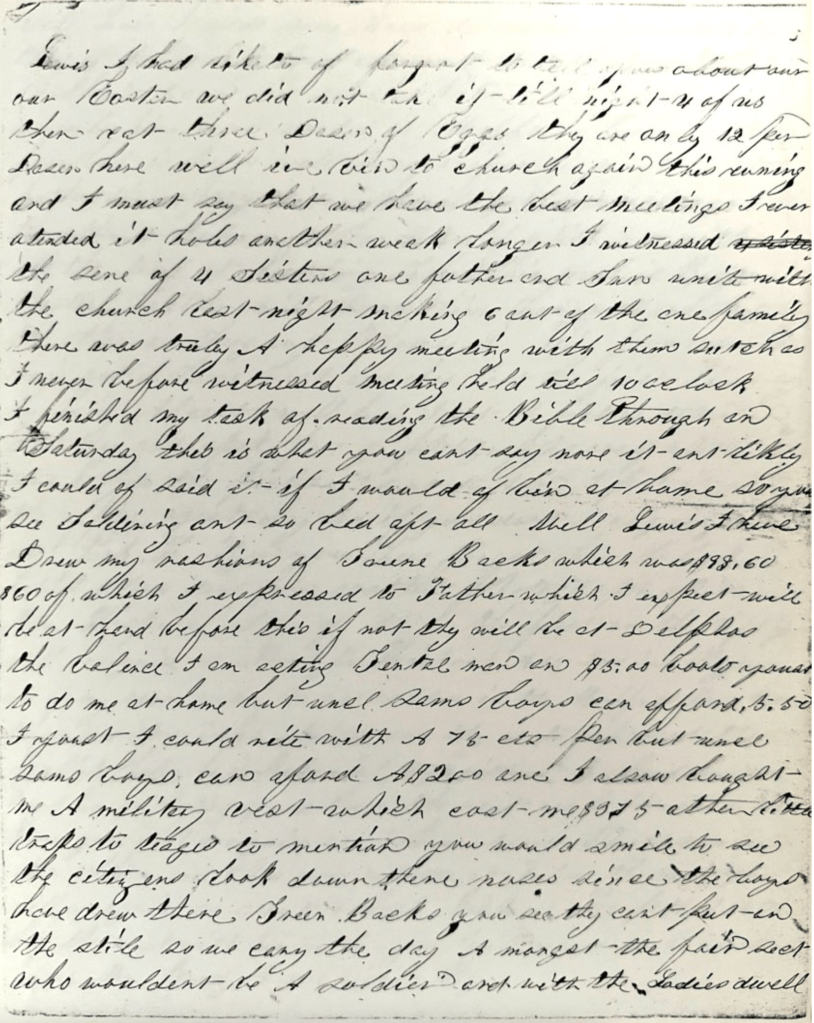 Lewis I had liketo of forgot to tell you about our
our Easter we did not it till night 4 of us
then eat three Dosen of Eggs they are only 12 per
Dosen here well ive bin to church again this evening
and I must say that we have the best meetings I ever
atended it holes another weak longer I witnessed 4 sisters
the sene of 4 Sisters one father and Son unite with
the church last night making 6 out of the one family
there was truly A happy meeting with them sutch as
I never before witnessed meeting held till 10 oclock
I finished my task of reading the Bible through on
Saturday this is what you cant say nore it ant likely
I could of said it if I would of bin at home so you
see Soldiring ant so bad aft all Well Lewis I have
Drew my rashions of Greene Backs which was $98.60
$60 of which I expressed to Father which I expect will
be at hand before this if not thy will be at Delphos
the balince I am acting Gentle man on $5.00 boots youst
to do me at home but uncl Sams boys can afford 5.50
I youst I could rite with A 75 cts Pen but uncl
sams boys can aford A $200 one I alsow bought
me A militery vest which cost me $375 other little
traps to to mention you would smile to see
the citizens look down there noses since the boys
have drew there Green Backs you see thy cant put on
the stile so we cary the day A mongst the fair sect
who wouldent be A soldier and with the Ladies dwell